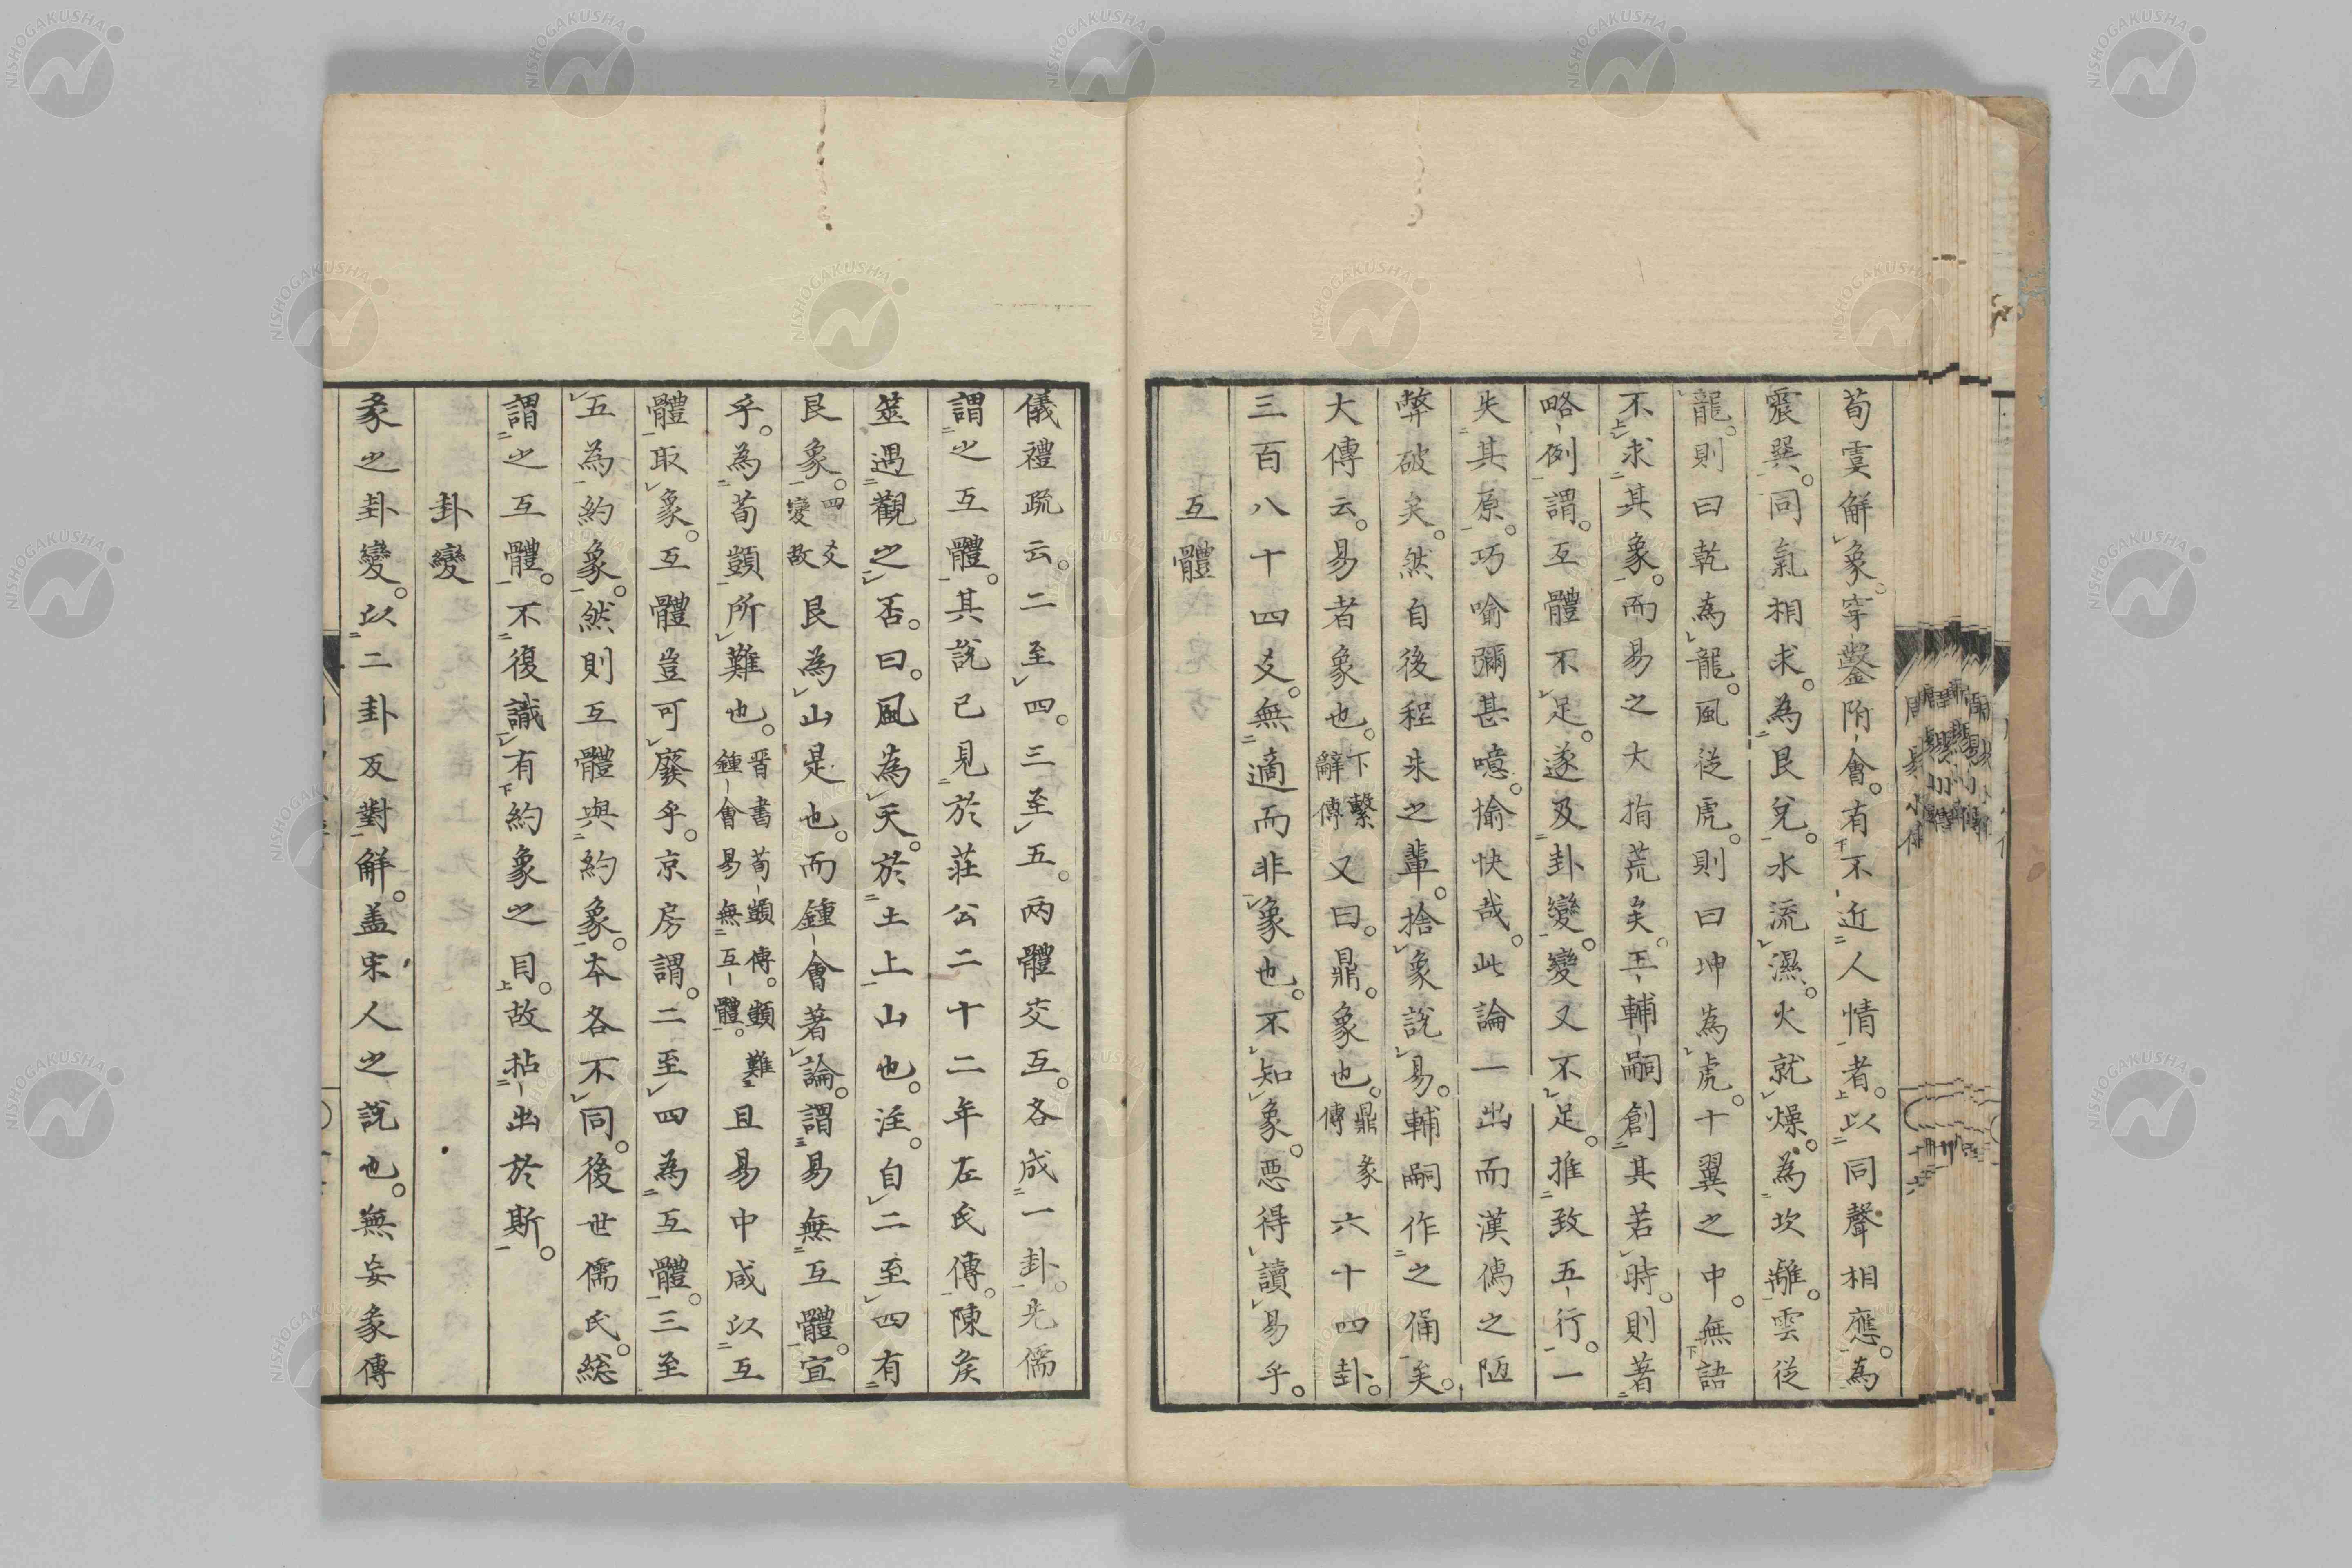 荀虞解象。穿鑿附會。有不近人情者。以同聲相應。為
震巽。同氣相求。為艮兌。水流濕。火就燥。為坎離。雲從
龍。則曰乾為龍。風從虎。則曰坤為虎。十翼之中。無語
不求其象。而易之大指荒矣。王輔嗣創其若時。則著
略例謂。互體不足。遂及卦變。變又不足。推致五行。一
失其原。巧喻彌甚噫。愉快哉。此論一出而漢儒之陋
弊破矣。然自後程朱之輩。捨象說易。輔嗣作之俑矣。
大傳云。易者象也。下繫辭傳又曰。鼎。象也。鼎彖傳六十四卦。
三百八十四爻。無適而非象也。不知象。惡得讀易乎。
互體
儀禮疏云。二至四。三至五。兩體交互。各成一卦。先儒
謂之互體。其說已見於莊公二十二年左氏傳。陳侯
筮遇觀之否。曰。風為天。於土上山也。注。自二至四有
艮象。四爻變故艮為山是也。而鍾會著論。謂易無互體。宜
乎。為荀顗所難也。晋書荀顗傳。顗難鍾會易無互體。且易中咸以互
體取象。互體豈可廢乎。京房謂。二至四為互體。三至
五為約象。然則互體與約象。本各不同。後世儒氏。総
謂之互體。不復識有約象之目。故拈出於斯。
卦變
彖之卦變。以二卦反對解。盖宋人之說也。無妄彖傳
NISHOGAKUSHA